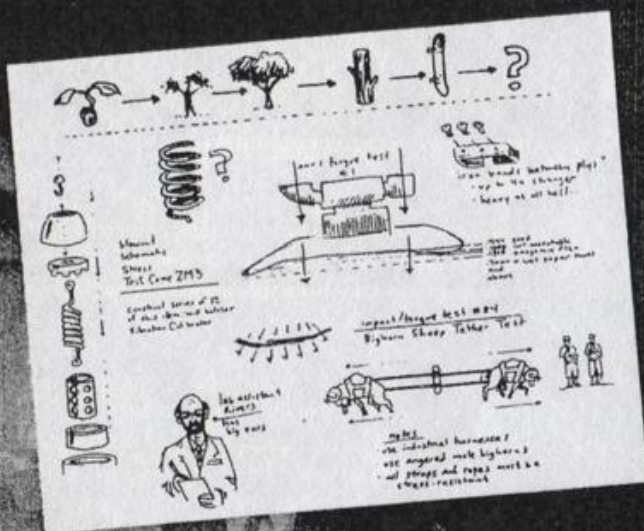 ?
?
torque test
#1
iron bands between plys?
• up to 4x stronger
• heavy as all hell.
Wound
Schematic
Stress
Test Core ZM3
Construct series of 12
of this item and
Vibration
impact/torque test #84
Bighorn Sheep Tether Test
lab assistant
Rivers
has
big ears
notes
• use industrial harnesses
• use angered male bighorns
• all straps and ropes must be
stress-resistant